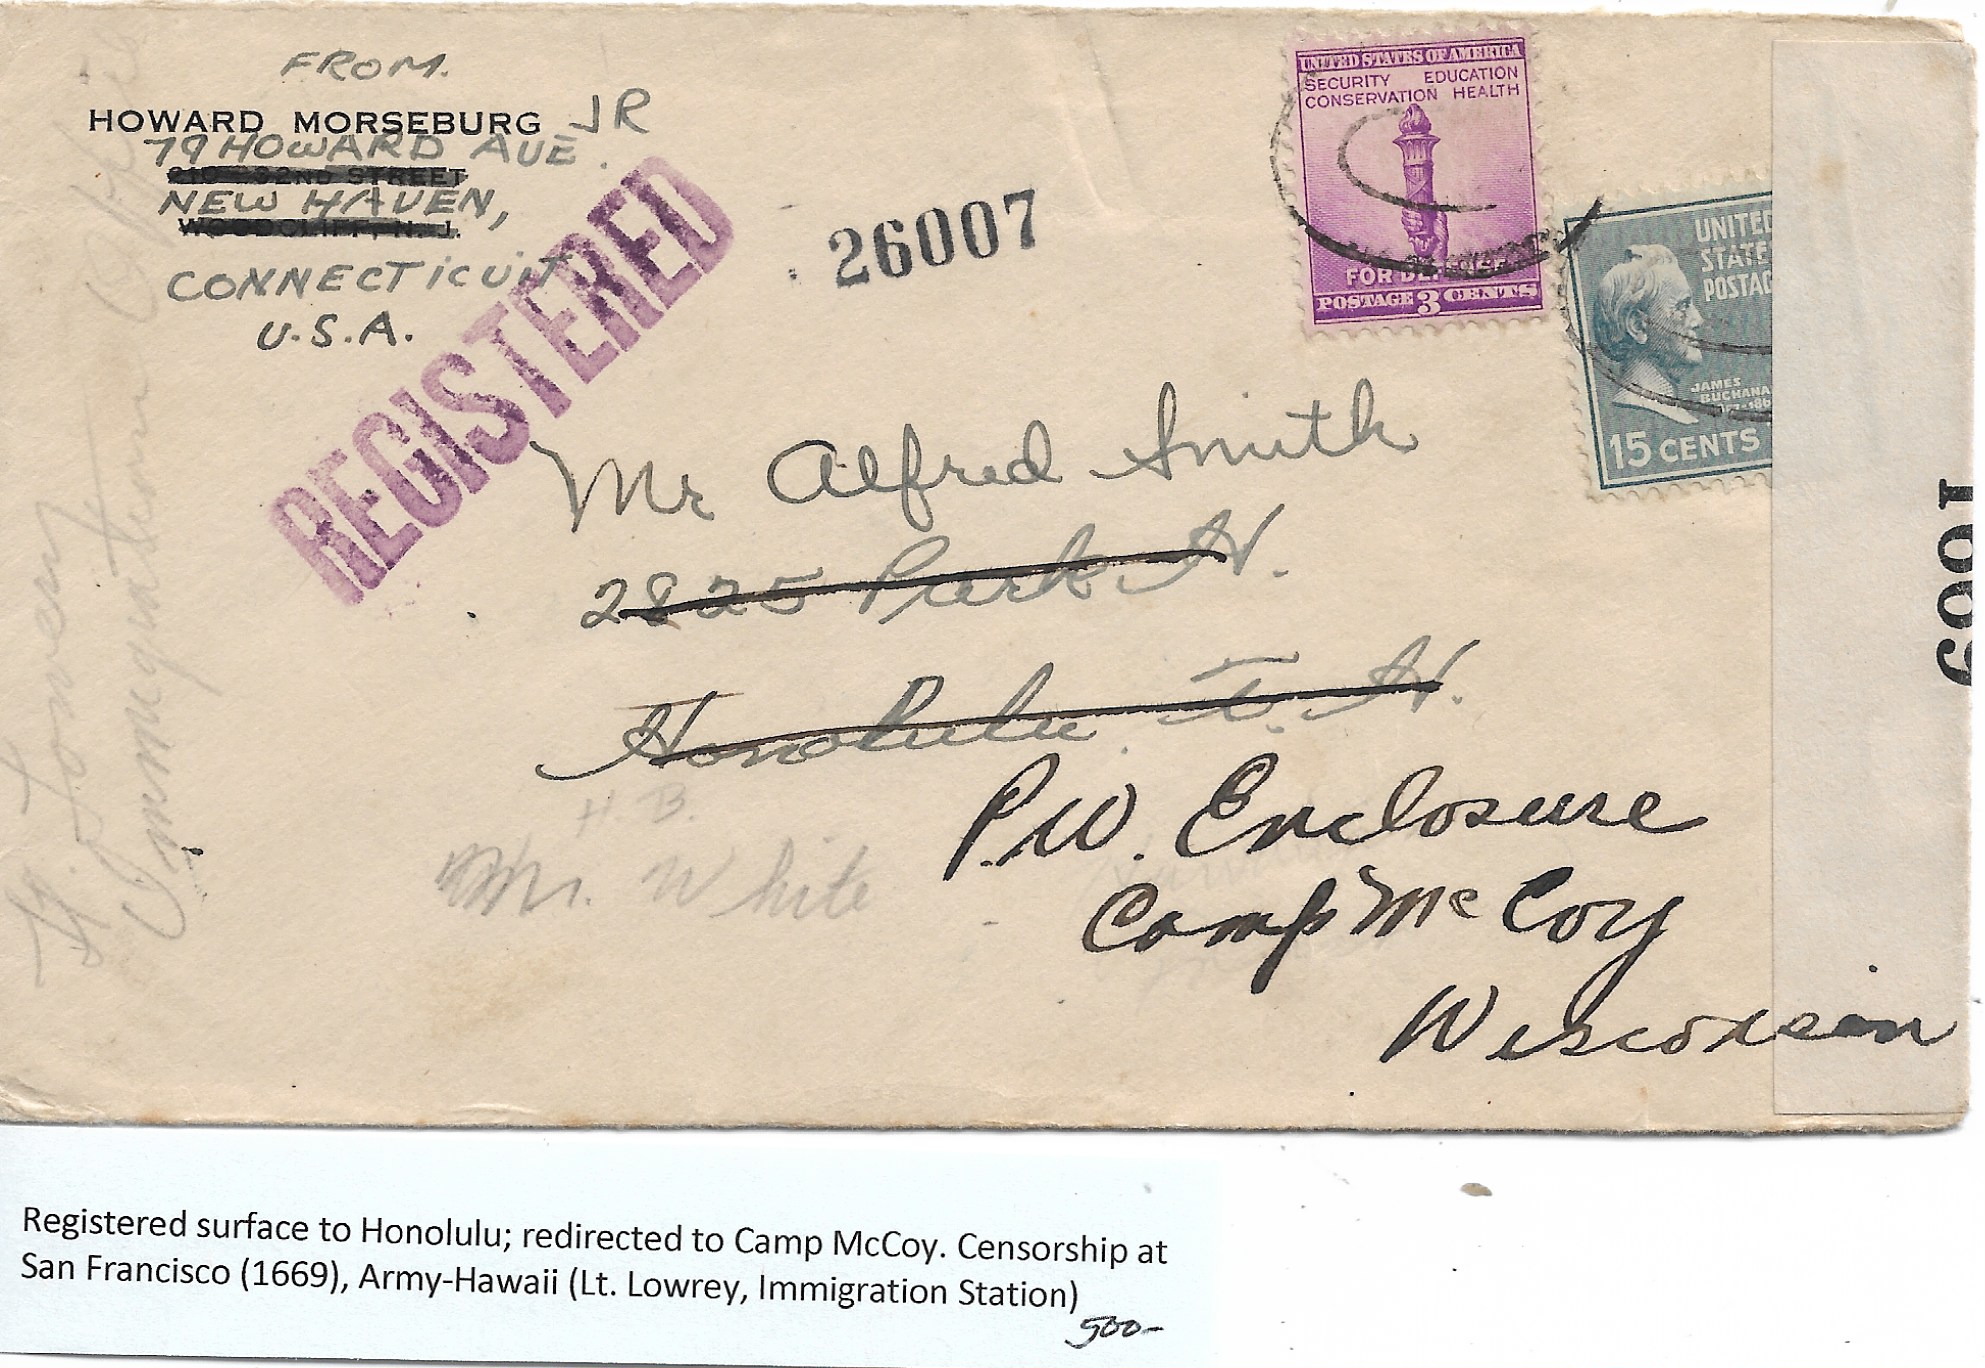 FROM.
HOWARD MORSEBURG JR
79 HOWARD AVE.
210 32ND STREET
NEW HAVEN,
WOODCLIFF, N. J.
CONNECTICUIT
U.S.A.
REGISTERED
26007
UNITED STATES OF AMERICA
SECURITY EDUCATION
CONSERVATION HEALTH
FOR DEFENSE
POSTAGE 3 CENTS
UNITED
STATE
POSTAG
JAMES
BUCHANA
15 CENTS
Mr Alfred Smith
2825 Park St.
Honolulu. T. H.
H. B.
Mr. White
P.W. Enclosure
Camp McCoy
Wisconsin
Lt. Lowery
Immegration Office
1669
Registered surface to Honolulu; redirected to Camp McCoy. Censorship at
San Francisco (1669), Army-Hawaii (Lt. Lowrey, Immigration Station)
500-